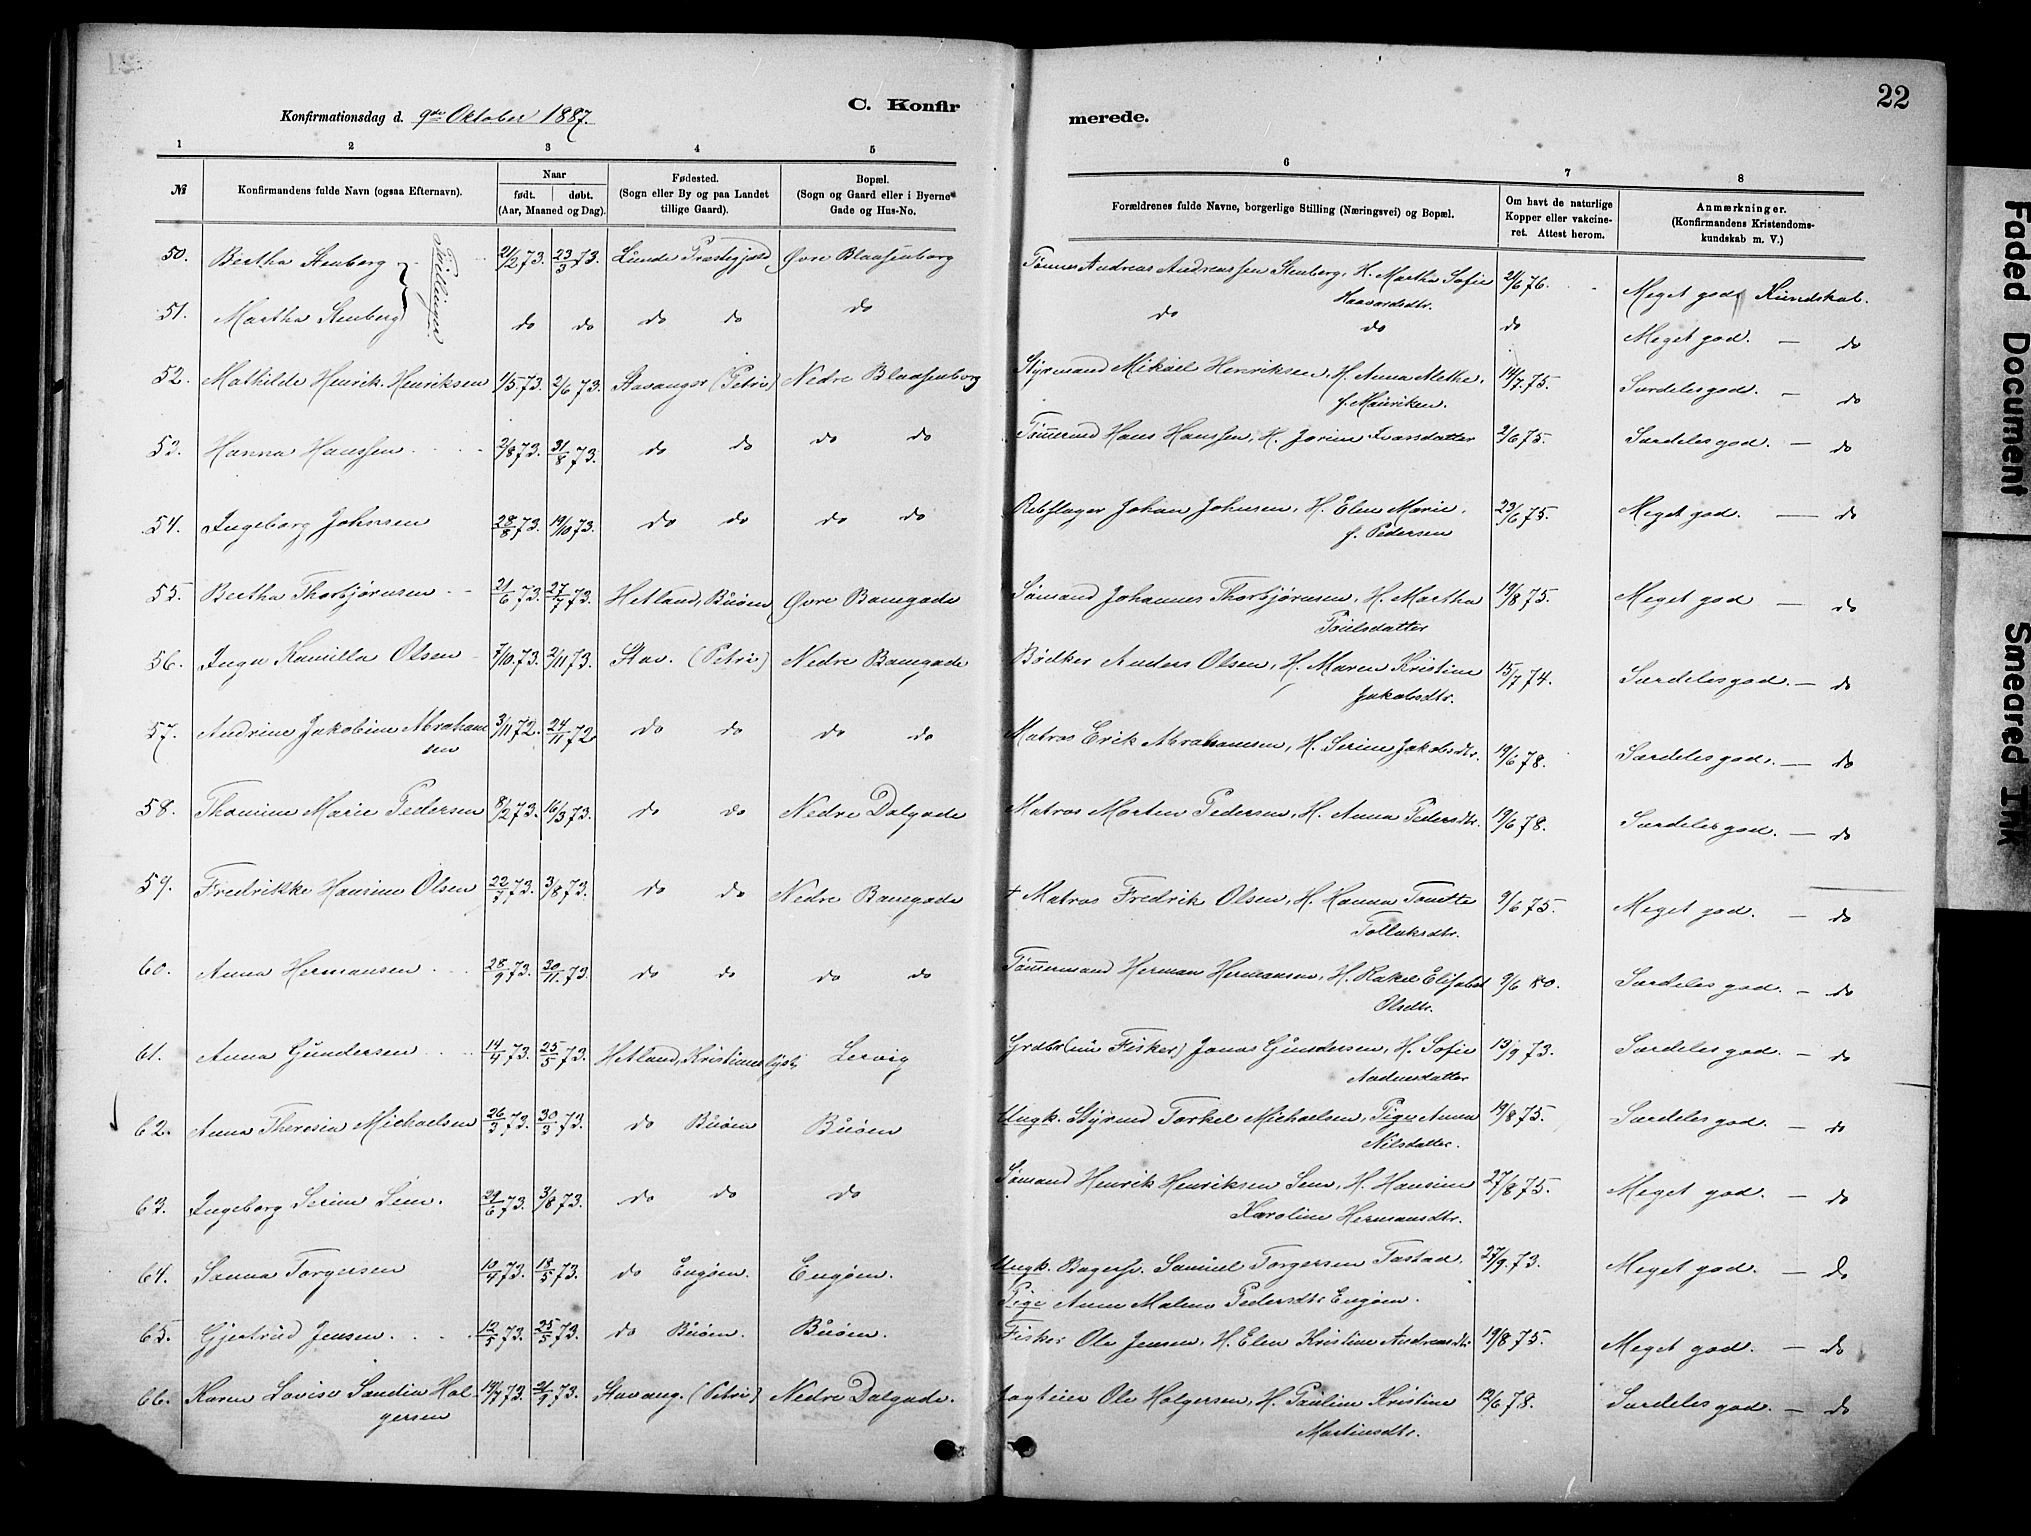 22
C. Konfirmerede.
Konfirmationsdag d. 9de Oktober 1887.
1 2 3 4 5 6 7 8
№ Konfirmandens fulde Navn (ogsaa Efternavn). Naar født. døbt. (Aar, Maaned og Dag). Fødested. (Sogn eller By og paa Landet tillige Gaard). Bopæl. (Sogn og Gaard eller i Byerne Gade og Hus-No. Forældrenes fulde Navne, borgerlige Stilling (Næringsvei) og Bopæl. Om havt de naturlige Kopper eller vakcineret. Attest herom. Anmærkninger. (Konfirmandens Kristendomskundskab m. V.)
50. Bertha Stenberg } Tvillinger. 21/2 73. 23/3 73. Lunde Præstegjæld Øvre Blaasenborg Tønnes Andreas Andreassen Stenberg, H. Martha Sofie 21/6 76. Meget god Kundskab.
Haavardsdtr.
51. Martha Stenberg do do do do do do do do Meget god. — do
52. Mathilde Henrik. Henriksen 1/5 73. 2/6 73. Stavanger (Petri) Nedre Blaasenborg Styrmand Mikael Henriksen, H. Anna Alethe, 14/7 75. Særdeles god. — do
f. Mauritzen.
53. Hanna Hanssen 2/8 73. 31/8 73. do do do do Tømmermd Hans Hanssen, H. Jorine Ivarsdatter 2/6 75. Særdeles god. — do
54. Ingeborg Johnsen 28/8 73. 19/10 73. do do do do Rebslager Johan Johnsen, H. Elen Marie, 23/6 75. Meget god. — do
f. Pedersen
55. Bertha Thorbjørnsen 21/6 73. 27/7 73. Hetland, Buøen Øvre Banegade Sømand Johannes Thorbjørnsen, H. Martha 19/8 75. Meget god — do
Poulsdatter
56. Inga Kamilla Olsen 7/10 73. 2/11 73. Stav. (Petri) Nedre Banegade Bødker Anders Olsen, H. Maren Kristine 15/7 74. Særdeles god. — do
Jakobsdtr.
57. Andrine Jakobine Abrahamsen 3/11 72. 24/11 72. do do do do Matros Erik Abrahamsen, H. Serine Jakobsdtr. 19/6 78. Særdeles god. — do
58. Thomine Marie Pedersen 8/2 73. 16/3 73. do do Nedre Dalgade Matros Morten Pedersen, H. Anna Pedersdtr. 19/6 78. Særdeles god. — do
59. Fredrikke Hansine Olsen 22/7 73. 3/8 73. do do Nedre Banegade + Matros Fredrik Olsen, H. Hanna Tonette 9/6 75. Meget god. — do
Tollaksdtr.
60. Anna Hermansen 28/9 73. 30/11 73. do do do do Tømmermand Herman Hermansen, H. Rakel Elisabet 9/6 80. Særdeles god. — do
Olsdtr.
61. Anna Gundersen 14/4 73. 25/5 73. Hetland, Kristianslyst, Lervig Grdbr. (nu Fisker) Jonas Gundersen, H. Sofie 13/9 73. Særdeles god. — do
Aadnesdatter
62. Anna Theresia Michaelsen 26/3 73. 30/3 73. do Buøen Buøen Ungk. Styrmd Torkel Michaelsen, Pige Anna 19/8 75. Særdeles god. — do
Nilsdatter.
63. Ingeborg Serine Sem. 29/6 73. 3/8 73. do do do Sømand Henrik Henriksen Sem, H. Hansine 27/8 75. Meget god. — do
Karoline Hermansdtr.
64. Sanna Torgersen 10/4 73. 18/5 73. do Engøen. Engøen. Ungk. Bagersv. Samuel Torgersen Tastad. 27/9 73. Meget god. — do
Pige Anne Malene Pedersdtr Engøen.
65. Gjertrud Jensen. 12/5 73. 25/5 73. do Buøen. Buøen. Fisker Ole Jensen, H. Elen Kristine Andreasdtr. 19/8 75. Meget god. — do
66. Karen Lovise Sandia Holgersen 19/7 73. 21/9 73. Stavang. (Petri) Nedre Dalgade. Jagteier Ole Holgersen, H. Pauline Kristine 12/6 78. Særdeles god. — do
Martinsdtr.
Faded Document
Smeared Ink